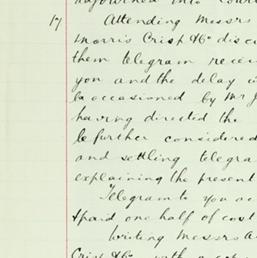 adjourned into Cour
17 Attending Messrs
Morris Crisp & Co disc
them telegram recei
you and the delay i
be occasioned by Mr J
having directed the
be further considered
and settling telegra
explaining the present
Telegram to you ac
& paid one half of cost
Writing Messrs A
Crisp & Co with a cop